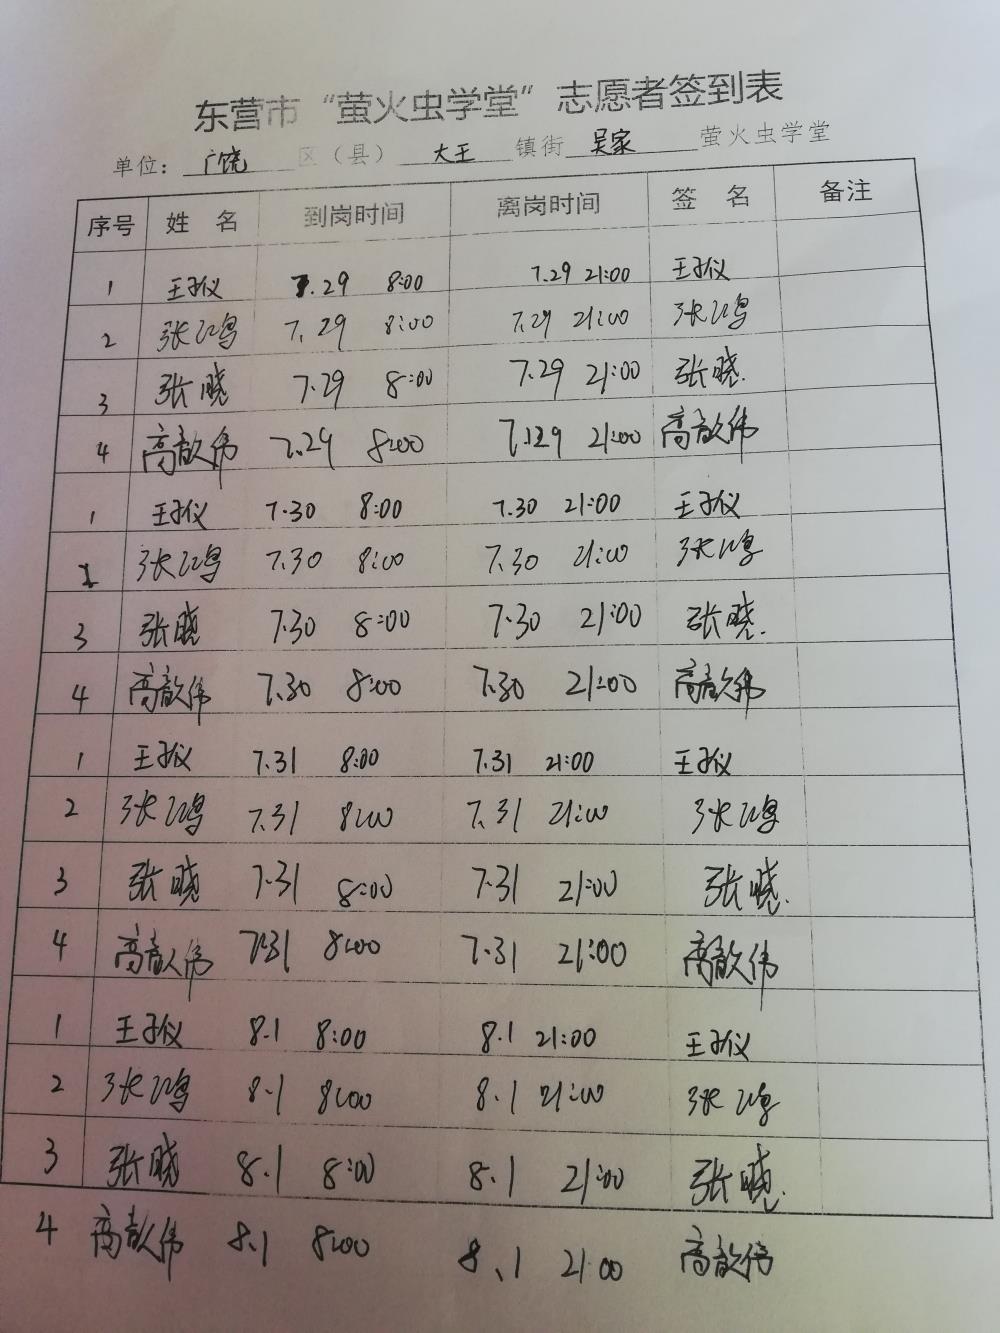 东营市“萤火虫学堂”志愿者签到表
单位：广饶 区（县） 大王 镇街 吴家 萤火虫学堂
序号 姓 名 到岗时间 离岗时间 签 名 备注
1 王子仪 7.29 8:00 7.29 21:00 王子仪
2 张江鸿 7.29 8:00 7.29 21:00 张江鸿
3 张晓 7.29 8:00 7.29 21:00 张晓
4 高歆伟 7.29 8:00 7.29 21:00 高歆伟
1 王子仪 7.30 8:00 7.30 21:00 王子仪
2 张鸿 7.30 8:00 7.30 21:00 张鸿
3 张晓 7.30 8:00 7.30 21:00 张晓.
4 高歆伟 7.30 8:00 7.30 21:00 高歆伟
1 王子仪 7.31 8:00 7.31 21:00 王子仪
2 张鸿 7.31 8:00 7.31 21:00 张鸿
3 张晓 7.31 8:00 7.31 21:00 张晓.
4 高歆伟 7.31 8:00 7.31 21:00 高歆伟
1 王子仪 8.1 8:00 8.1 21:00 王子仪
2 张鸿 8.1 8:00 8.1 21:00 张鸿
3 张晓 8.1 8:00 8.1 21:00 张晓.
4 高歆伟 8.1 8:00 8.1 21:00 高歆伟